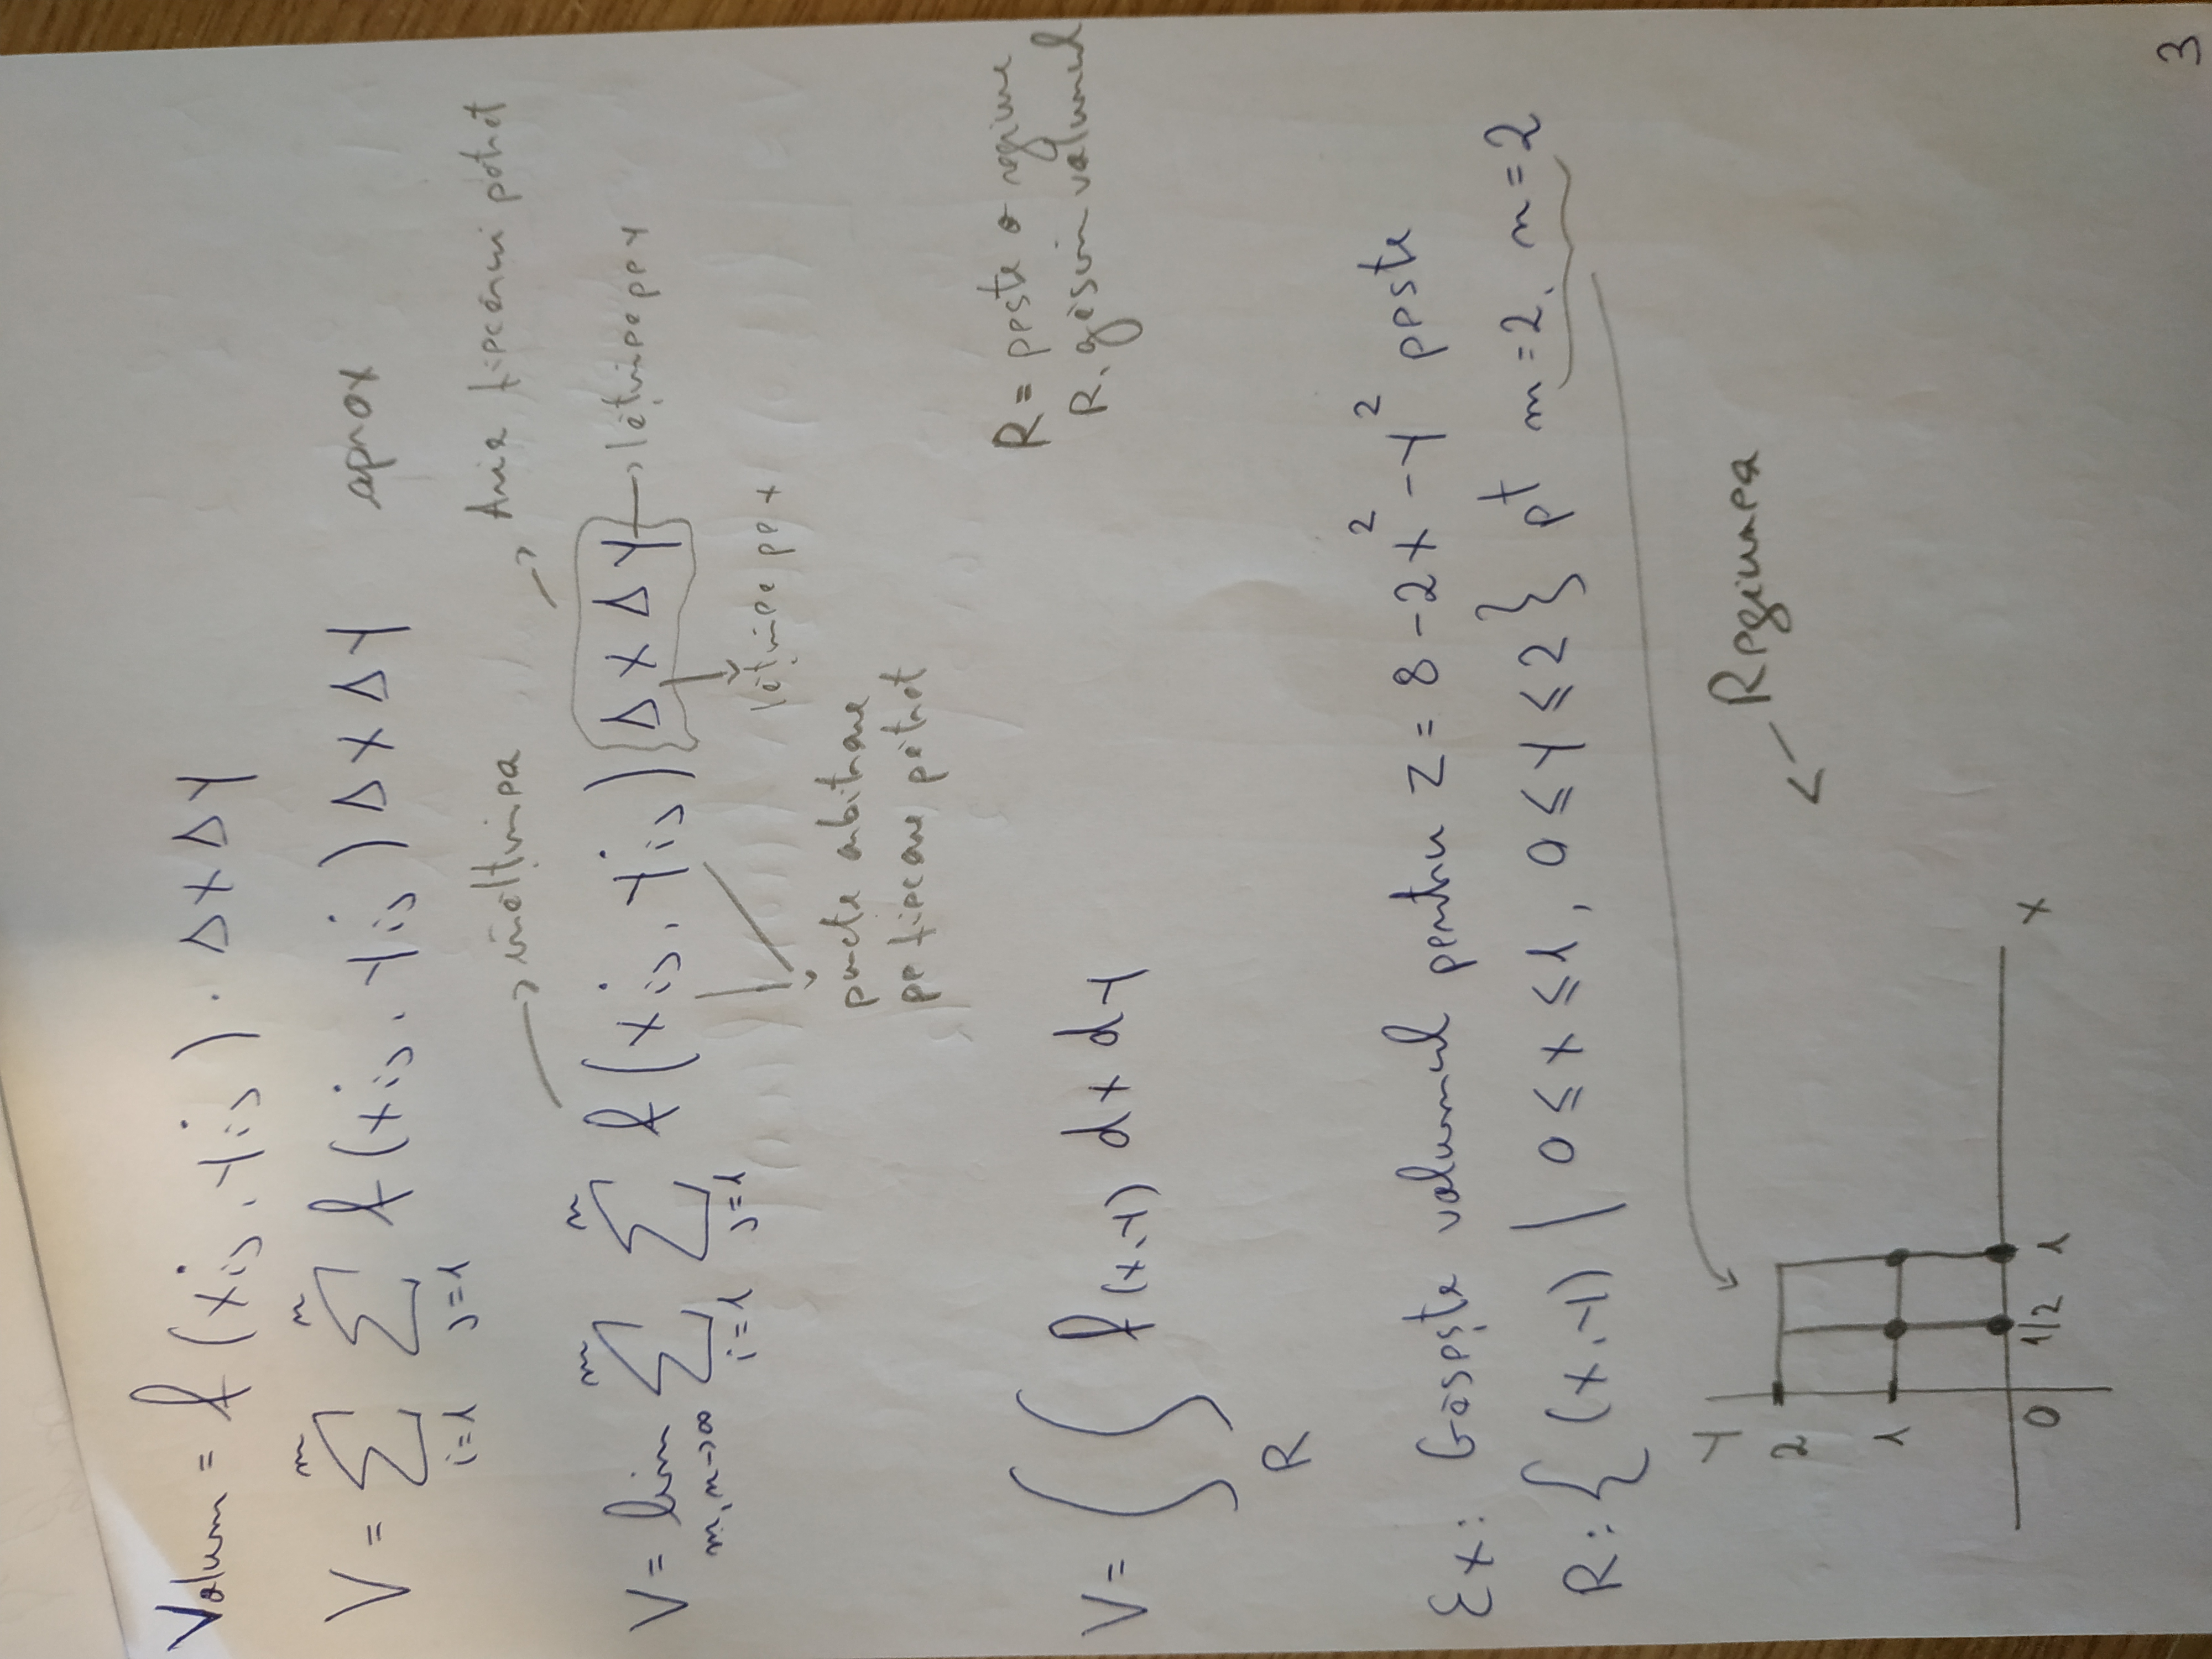 Volum = f(xij, yij) · ΔxΔy
V = m∑i=1 n∑j=1 f(xij, yij) ΔxΔy aprox
înălțimea
Aria fiecărui pătrat
V = lim m,n→∞ m∑i=1 n∑j=1 f(xij, yij) ΔxΔy → lățime pe y
lățime pe x
puncte arbitrare
pe fiecare pătrat
R = peste o regiune
R, găsim volumul
V = ∫∫ f(x,y) dx dy
R
Ex: Găsește volumul pentru z = 8 - 2x² - y² peste
R: {(x,y) | 0 ≤ x ≤ 1, 0 ≤ y ≤ 2} pt m=2, n=2
Regiunea
y
2
1
0 1/2 1 x
3